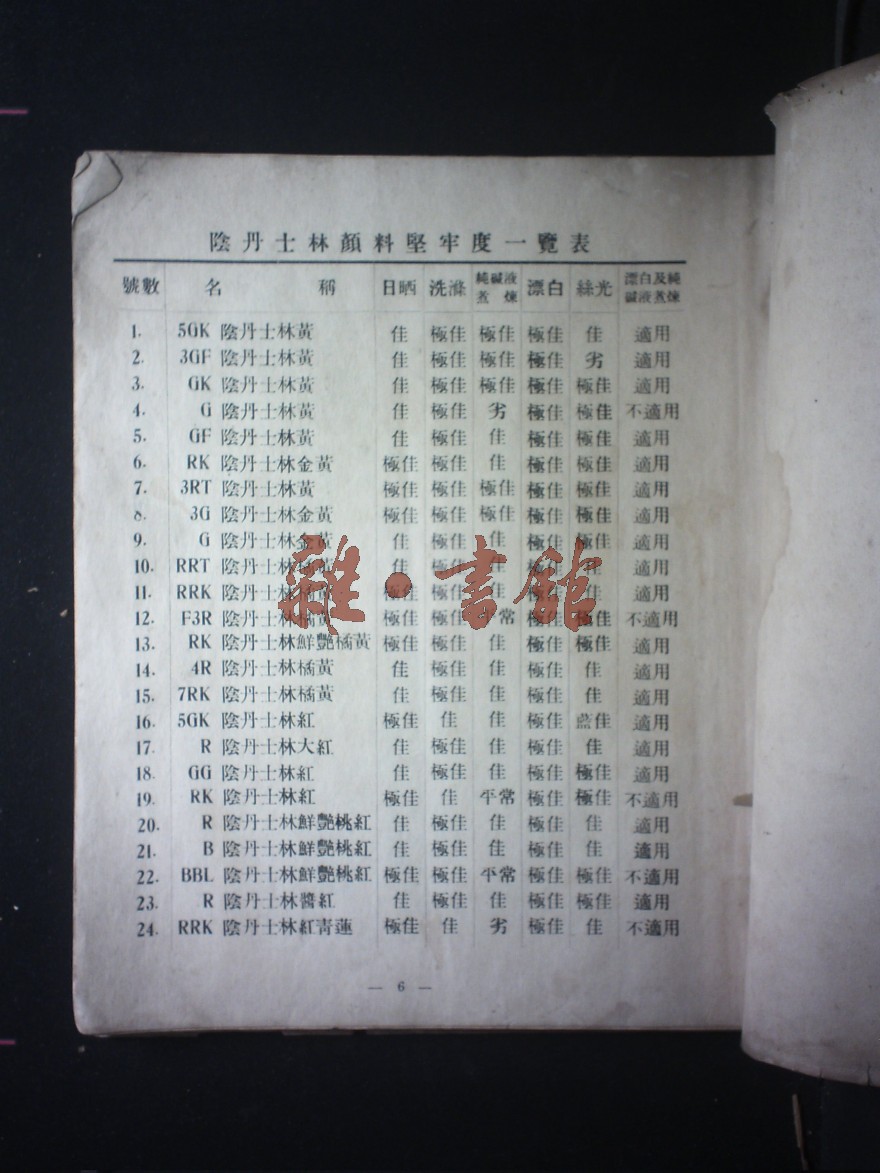 陰丹士林顏料堅牢度一覽表
號數 名稱 日晒 洗滌 純碱液蒸煉 漂白 絲光 漂白及純碱液蒸煉
1. 5GK 陰丹士林黃 佳 極佳 極佳 極佳 佳 適用
2. 3GF 陰丹士林黃 佳 極佳 極佳 極佳 劣 適用
3. GK 陰丹士林黃 佳 極佳 極佳 極佳 極佳 適用
4. G 陰丹士林黃 佳 極佳 劣 極佳 極佳 不適用
5. GF 陰丹士林黃 佳 極佳 佳 極佳 極佳 適用
6. RK 陰丹士林金黃 極佳 極佳 佳 極佳 極佳 適用
7. 3RT 陰丹士林黃 極佳 極佳 極佳 極佳 極佳 適用
8. 3G 陰丹士林金黃 極佳 極佳 極佳 極佳 極佳 適用
9. G 陰丹士林金黃 佳 極佳 佳 極佳 極佳 適用
10. RRT 陰丹士林橘黃 佳 極佳 佳 適用
11. RRK 陰丹士林橘黃 極佳 適用
雜·書館
12. F3R 陰丹士林橘黃 極佳 極佳 平常 極佳 極佳 不適用
13. RK 陰丹士林鮮艷橘黃 極佳 極佳 佳 極佳 極佳 適用
14. 4R 陰丹士林橘黃 佳 極佳 佳 極佳 佳 適用
15. 7RK 陰丹士林橘黃 佳 極佳 佳 極佳 佳 適用
16. 5GK 陰丹士林紅 極佳 佳 佳 極佳 藍佳 適用
17. R 陰丹士林大紅 佳 極佳 佳 極佳 佳 適用
18. GG 陰丹士林紅 佳 極佳 佳 極佳 極佳 適用
19. RK 陰丹士林紅 極佳 佳 平常 極佳 極佳 不適用
20. R 陰丹士林鮮艷桃紅 佳 極佳 佳 極佳 佳 適用
21. B 陰丹士林鮮艷桃紅 佳 極佳 佳 極佳 佳 適用
22. BBL 陰丹士林鮮艷桃紅 極佳 極佳 平常 極佳 極佳 不適用
23. R 陰丹士林醬紅 佳 極佳 佳 極佳 極佳 適用
24. RRK 陰丹士林紅青蓮 極佳 佳 劣 極佳 佳 不適用
— 6 —